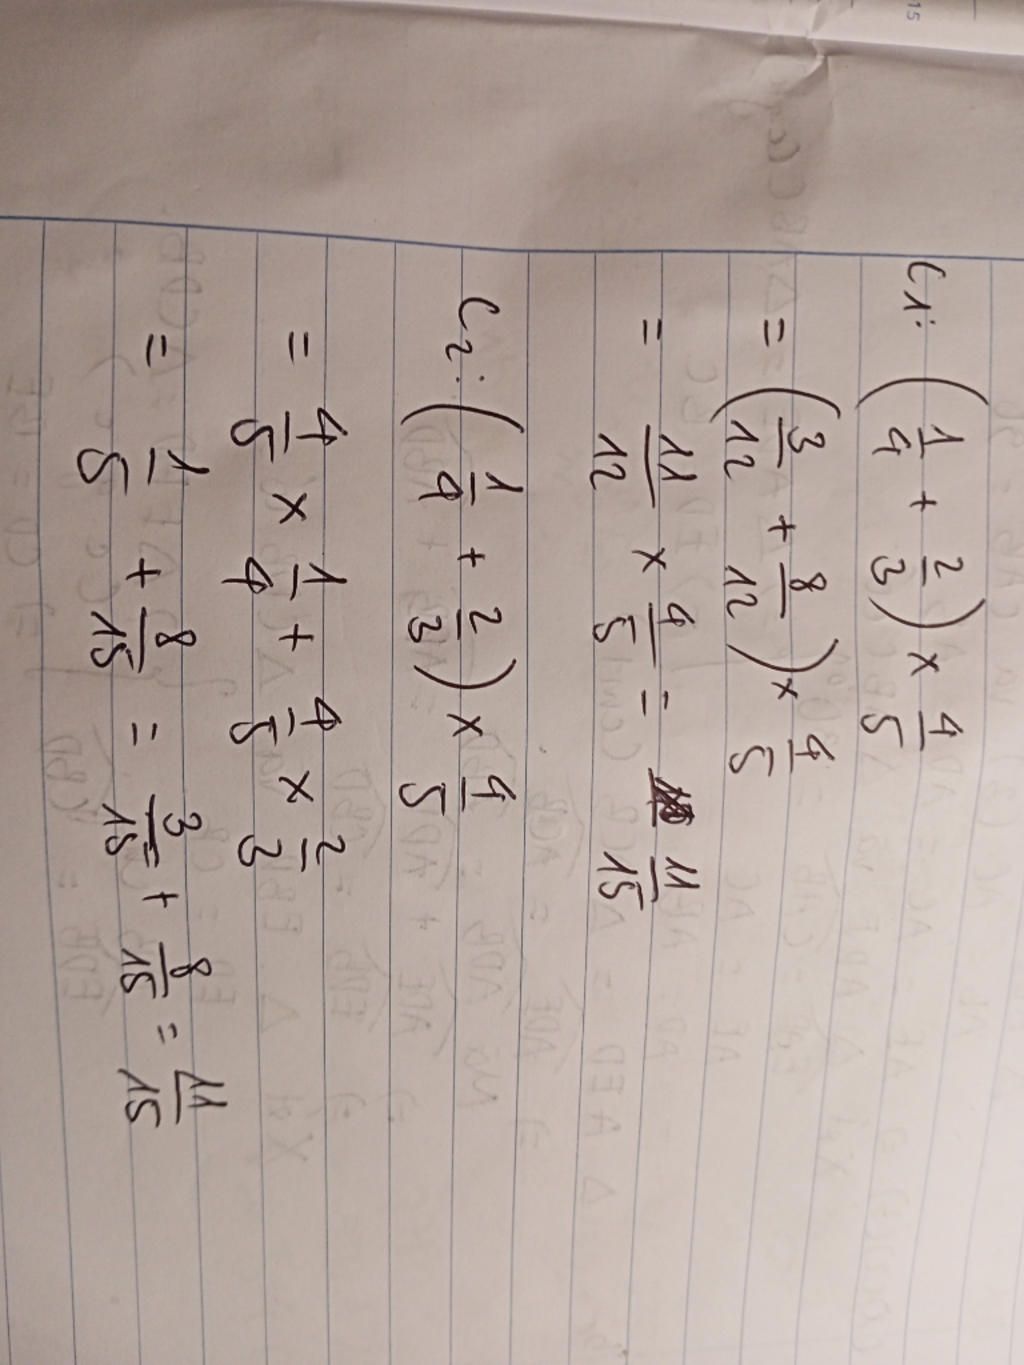 C1: (1/4 + 2/3) × 4/5
= (3/12 + 8/12) × 4/5
= 11/12 × 4/5 = 11/15
C2: (1/4 + 2/3) × 4/5
= 4/5 × 1/4 + 4/5 × 2/3
= 1/5 + 8/15 = 3/15 + 8/15 = 11/15
15